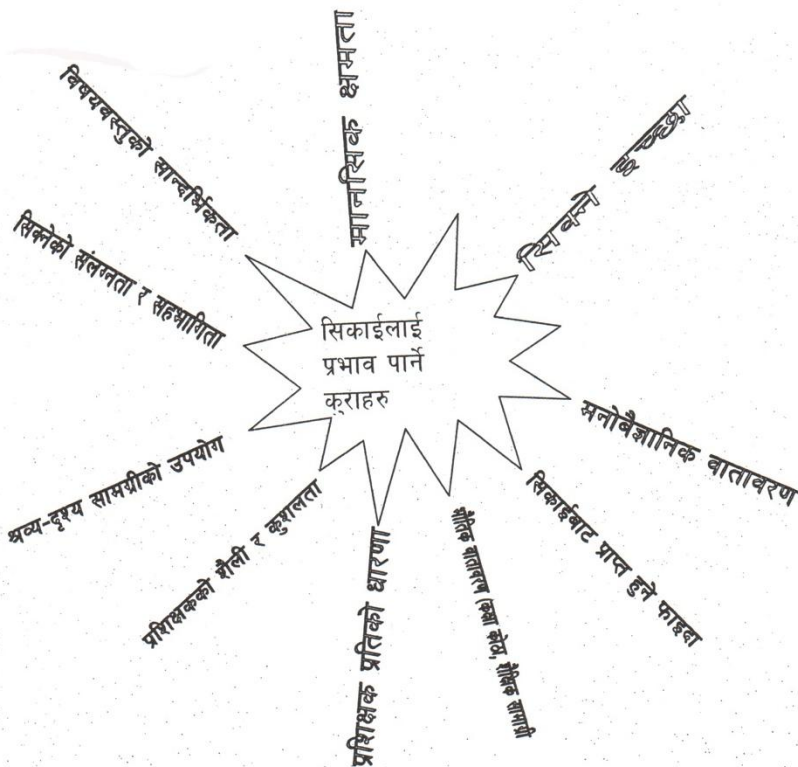 सिकाईलाई
प्रभाव पार्ने
कुराहरु
मानसिक क्षमता
सिक्ने इच्छा
मनोबैज्ञानिक वातावरण
सिकाईबाट प्राप्त हुने फाइदा
भौतिक वातावरण (कक्षा कोठा, शैक्षिक सामाग्री
प्रशिक्षक प्रतिको धारणा
प्रशिक्षकको शैली र कुशलता
श्रव्य-दृश्य सामग्रीको उपयोग
सिक्नेको संलग्नता र सहभागिता
विषयवस्तुको सान्दर्भिकता